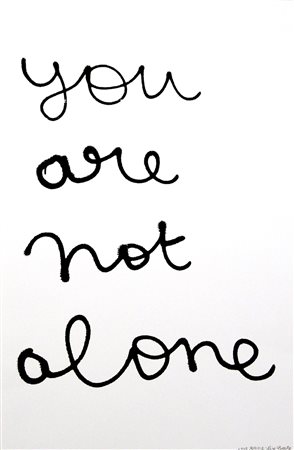 you
are
not
alone